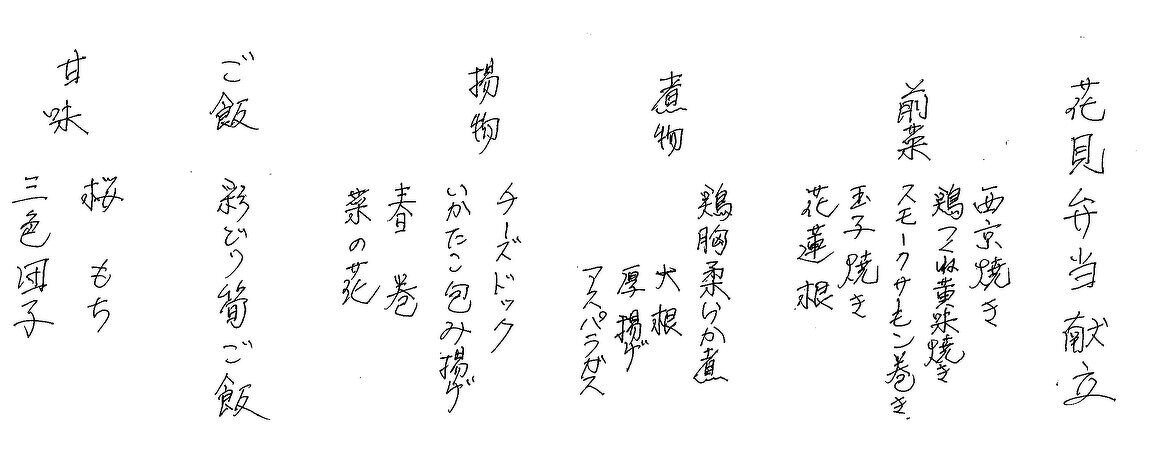 花見弁当献立
前菜
西京焼き
鶏つくね黄味焼き
スモークサーモン巻き
玉子焼き
花蓮根
煮物
鶏胸柔らか煮
大根
厚揚げ
アスパラガス
揚物
チーズドック
いかたこ包み揚げ
春巻
菜の花
ご飯
彩どり筍ご飯
甘味
桜もち
三色団子